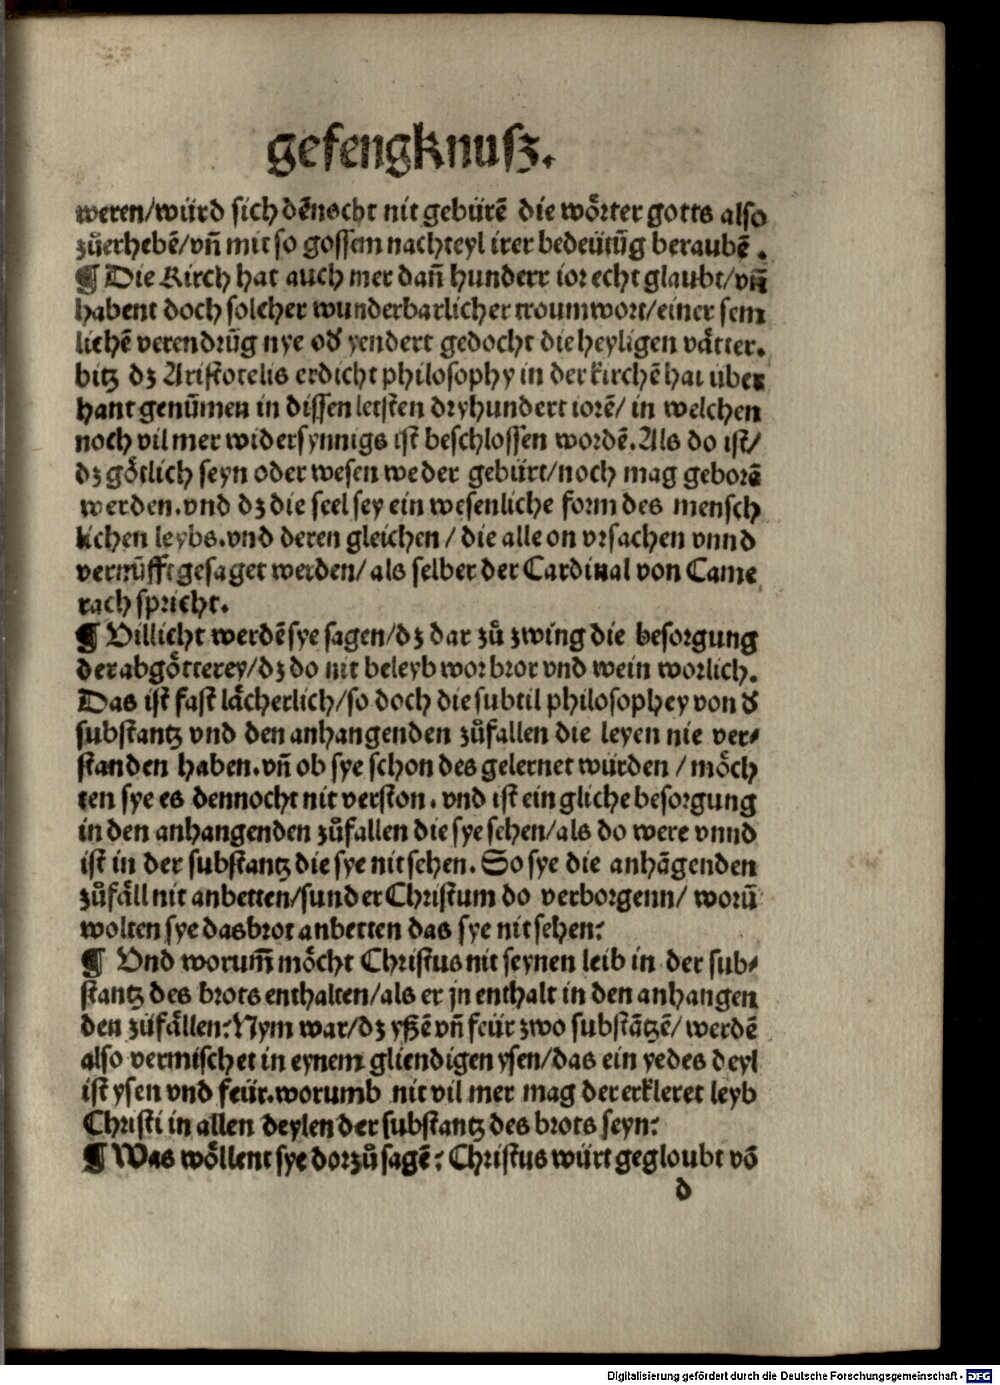 gefengknusz.
weren/würd sich dēnocht nit gebürē die wörter gotts also
zůerhebē/vn̄ mit so gossem nachteyl irer bedeütūg beraubē.
¶ Die Kirch hat auch mer dan̄ hundert ior echt glaubt/vn̄
habent doch solcher wunderbarlicher troumwort/einer sem
lichē verendrūg nye oď yendert gedocht die heyligen vätter.
bitz dz Aristotelis erdicht philosophy in der kirchē hat über
hant genūmen in dissen letsten dryhundert iorē/ in welchen
noch vil mer widersynnigs ist beschlossen wordē. Als do ist/
dz götlich seyn oder wesen weder gebürt/noch mag geborē
werden. vnd dz die seel sey ein wesenliche form des mensch
lichen leybs. vnd deren gleichen / die alle on vrsachen vnnd
vernūfft gesaget werden/ als selber der Cardinal von Came
rach spricht.
¶ Villicht werdē sye sagen/dz dar zů zwing die besorgung
der abgötterey/dz do nit beleyb wor brot vnd wein worlich.
Das ist fast lächerlich/so doch die subtil philosophey von ď
substantz vnd den anhangenden zůfallen die leyen nie ver⸗
standen haben. vn̄ ob sye schon des gelernet würden / möch
ten sye es dennocht nit verston. vnd ist ein gliche besorgung
in den anhangenden zůfallen die sye sehen/als do were vnnd
ist in der substantz die sye nit sehen. So sye die anhāgenden
zůfäll nit anbetten/sunder Christum do verborgenn/ worū
wolten sye das brot anbetten das sye nit sehen:
¶ Vnd worum̄ möcht Christus nit seynen leib in der sub⸗
stantz des brots enthalten/als er jn enthalt in den anhangen
den züfällen: Nym war/dz yßē vn̄ feür zwo substātzē/ werdē
also vermischet in eynem gliendigen ysen/das ein yedes deyl
ist ysen vnd feür. worumb nit vil mer mag der erkleret leyb
Christi in allen deylen der substantz des brots seyn:
¶ Was wöllent sye dorzů sagē: Christus würt gegloubt vō
d
Digitalisierung gefördert durch die Deutsche Forschungsgemeinschaft - DFG